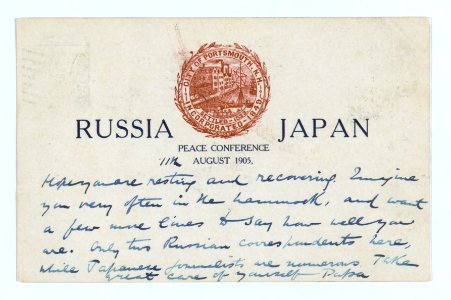 CITY OF PORTSMOUTH, N.H.
INCORPORATED 1849
RUSSIA JAPAN
PEACE CONFERENCE
11th AUGUST 1905.
Hope you are resting and recovering. Imagine
you very often in the hammock, and want
a few more lines to say how well you
are. Only two Russian correspondents here,
while Japanese journalists are numerous. Take
great care of yourself Papa